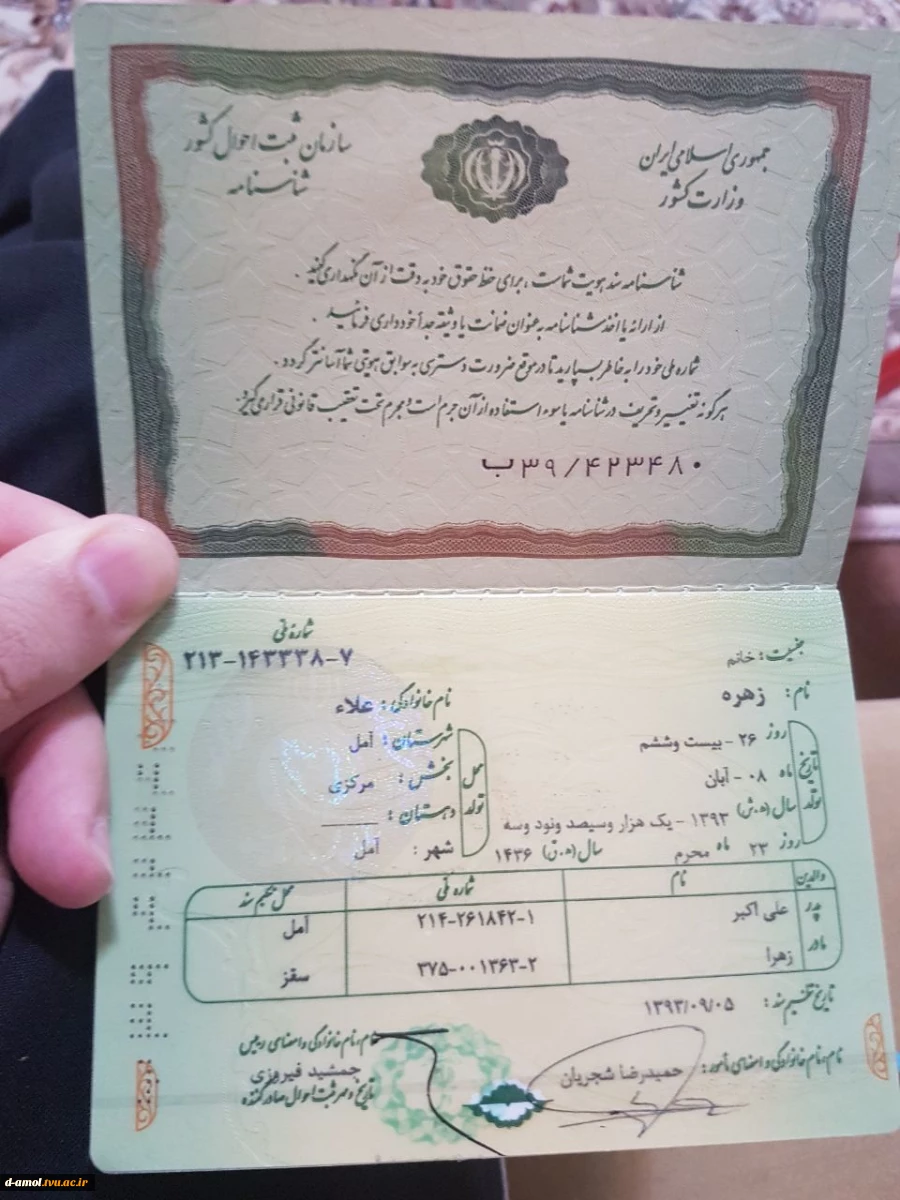 جمهوری اسلامی ایران
وزارت کشور
سازمان ثبت احوال کشور
شناسنامه
شناسنامه سند هویت شماست ، برای حفظ حقوق خود به دقت از آن نگهداری کنید .
از ارائه یا اخذ شناسنامه به عنوان ضمانت یا وثیقه جداً خودداری فرمائید .
شماره ملی خود را به خاطر بسپارید تا در موقع ضرورت دسترسی به سوابق هویتی شما آسانتر گردد .
هرگونه تغییر و تحریف در شناسنامه یا سوء استفاده از آن جرم است و مجرم تحت تعقیب قانونی قرار می گیرد.
ب۳۹/۴۲۳۴۸۰
شماره ملی
۲۱۳-۱۴۳۳۳۸-۷
جنسیت : خانم
نام : زهره
نام خانوادگی : علاء
تاریخ تولد
روز ۲۶ - بیست وششم
ماه ۰۸ - آبان
سال (ه.ش) ۱۳۹۳ - یک هزار وسیصد ونود وسه
روز ۲۳ ماه محرم سال (ه.ق) ۱۴۳۶
محل تولد
شهرستان : آمل
بخش : مرکزی
دهستان : ———
شهر : آمل
والدین نام شماره ملی محل تنظیم سند
پدر علی اکبر ۲۱۴-۲۶۱۸۴۲-۱ آمل
مادر زهرا ۳۷۵-۰۰۱۳۶۳-۲ سقز
تاریخ تنظیم سند : ۱۳۹۳/۰۹/۰۵
نام، نام خانوادگی و امضای مأمور : حمیدرضا شجریان
نام، نام خانوادگی و امضای رییس
جمشید فیروزی
تاریخ و مهر ثبت احوال صادر کننده
d-amol.tvu.ac.ir